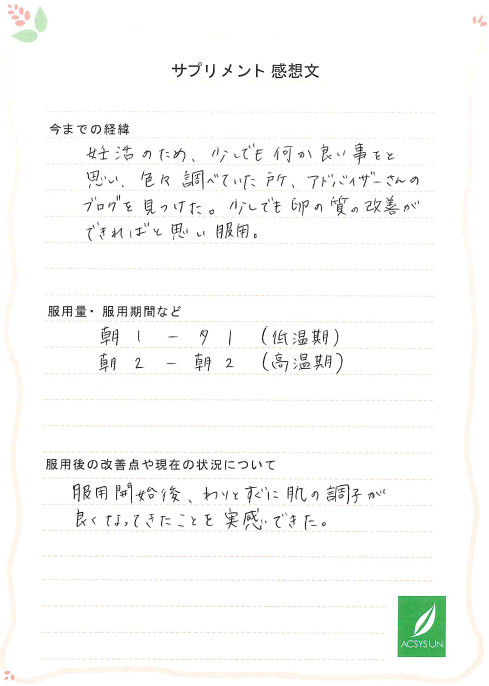 サプリメント 感想文
今までの経緯
妊活のため、少しでも何か良い事をと
思い、色々調べていた所、アドバイザーさんの
ブログを見つけた。少しでも卵の質の改善が
できればと思い服用。
服用量・服用期間など
朝 1 ー 夕 1 (低温期)
朝 2 ー 朝 2 (高温期)
服用後の改善点や現在の状況について
服用開始後、わりとすぐに肌の調子が
良くなってきたことを実感できた。
ACSYSUN